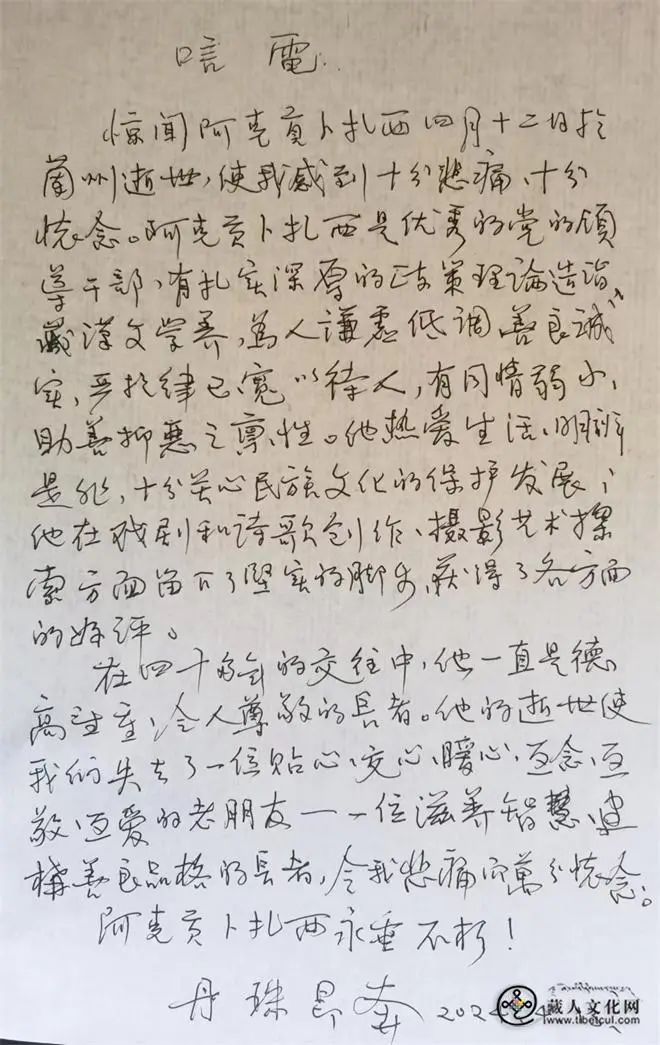 唁 電
惊闻阿克贡卜扎西四月十二日於
蘭州逝世,使我感到十分悲痛、十分
怀念。阿克贡卜扎西是优秀的党的領
導干部,有扎实深厚的政策理論造诣、
藏漢文学养,為人謙虚低调善良诚
实,严於律己寬以待人,有同情弱小、
助善抑恶之禀性。他热爱生活、明辨
是非,十分关心民族文化的保护发展;
他在戏剧和诗歌创作、摄影艺术探
索方面留下了堅实的脚步,获得了各方面
的好评。
在四十多年的交往中,他一直是德
高望重、令人尊敬的長者。他的逝世使
我们失去了一位贴心、交心、暖心、互念、互
敬、互爱的老朋友——一位滋养智慧、建
構善良品格的長者,令我悲痛而萬分怀念。
阿克贡卜扎西永垂不朽!
丹珠昂奔 202
藏人文化网
www.tibetcul.com